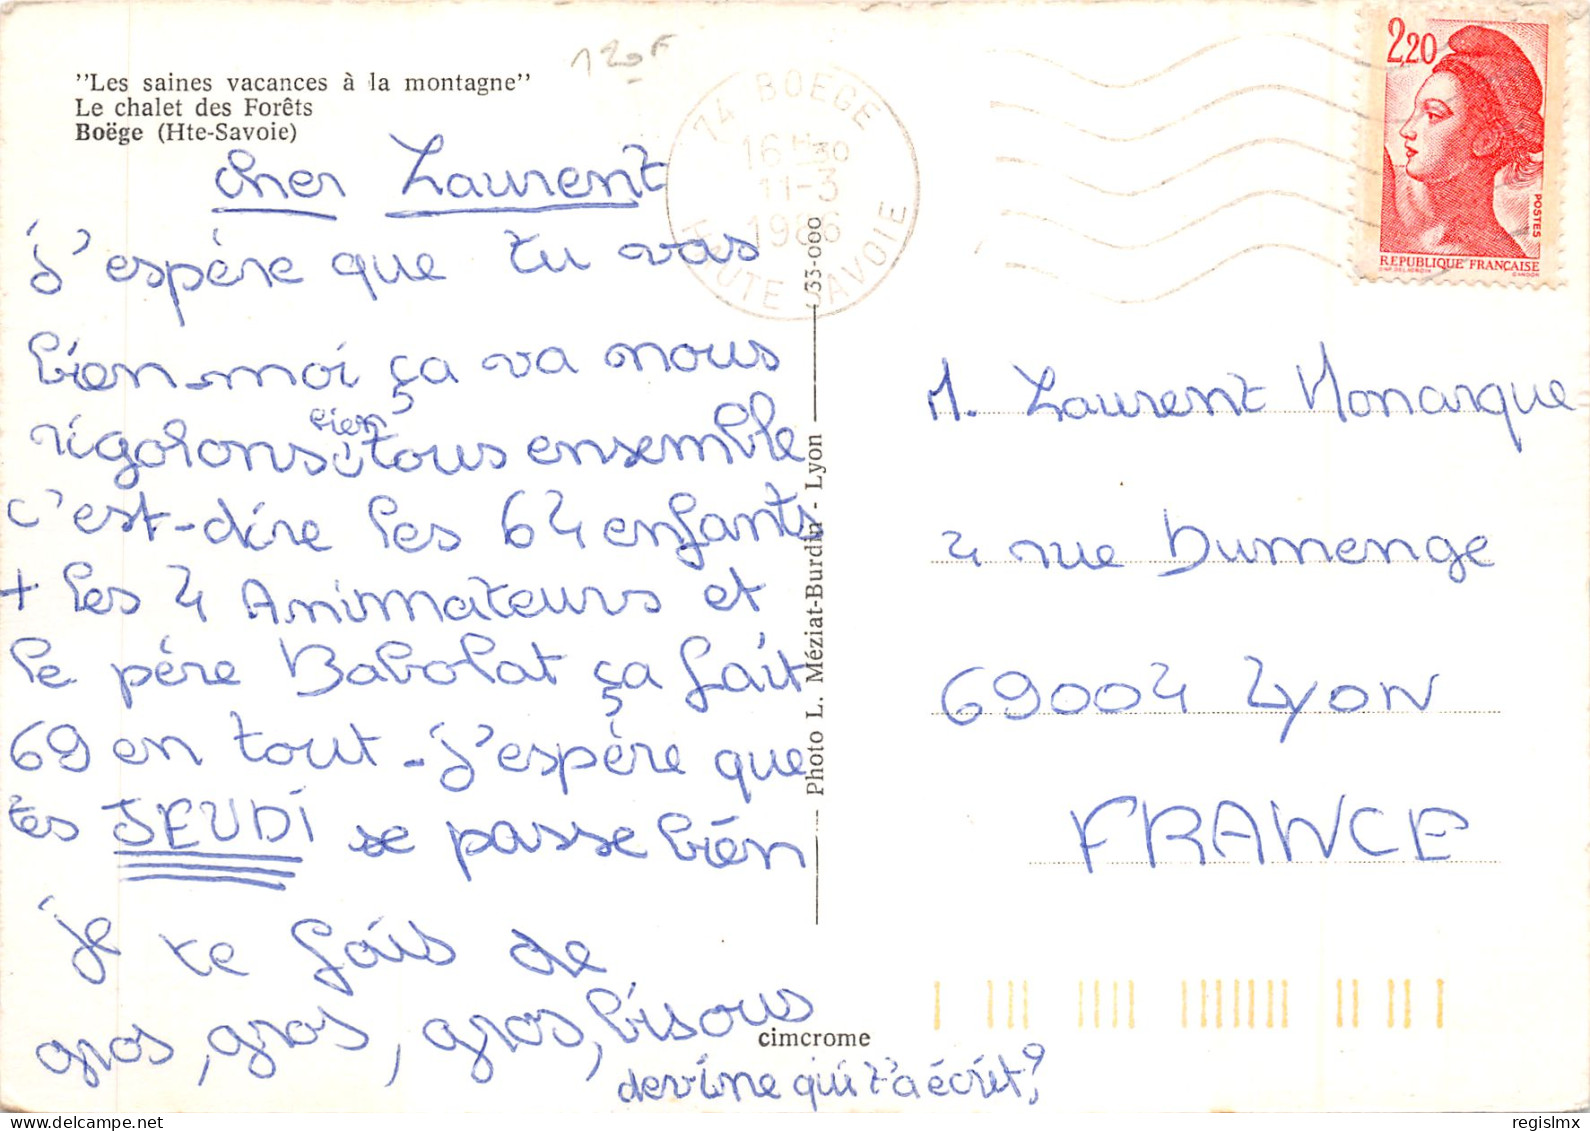 "Les saines vacances à la montagne"
Le chalet des Forêts
Boëge (Hte-Savoie)
120F
74 BOEGE
16H30
11-3
1986
HAUTE SAVOIE
2,20
POSTES
REPUBLIQUE FRANÇAISE
cher Laurent
j'espére que tu vas
bien-moi ça va nous
rigolons bien tous ensemble
c'est-dire les 64 enfants
+ les 4 Animateurs et
le pére Babolat ça fait
69 en tout - j'espére que
tes JEUDI se passe bién
je te fais de
gros, gros, gros, bisous
devine qui t'a écrit?
Photo L. Méziat-Burdin - Lyon
033-000
cimcrome
M. Laurent Monarque
4 rue Dumenge
69004 Lyon
FRANCE
regislmx